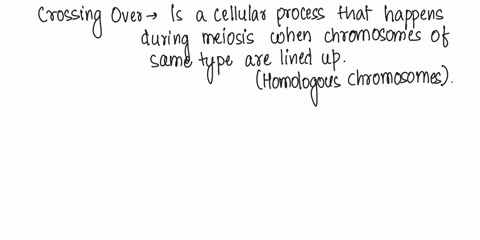 Crossing Over → Is a cellular process that happens
during meiosis when chromosomes of
same type are lined up.
(Homologous chromosomes).